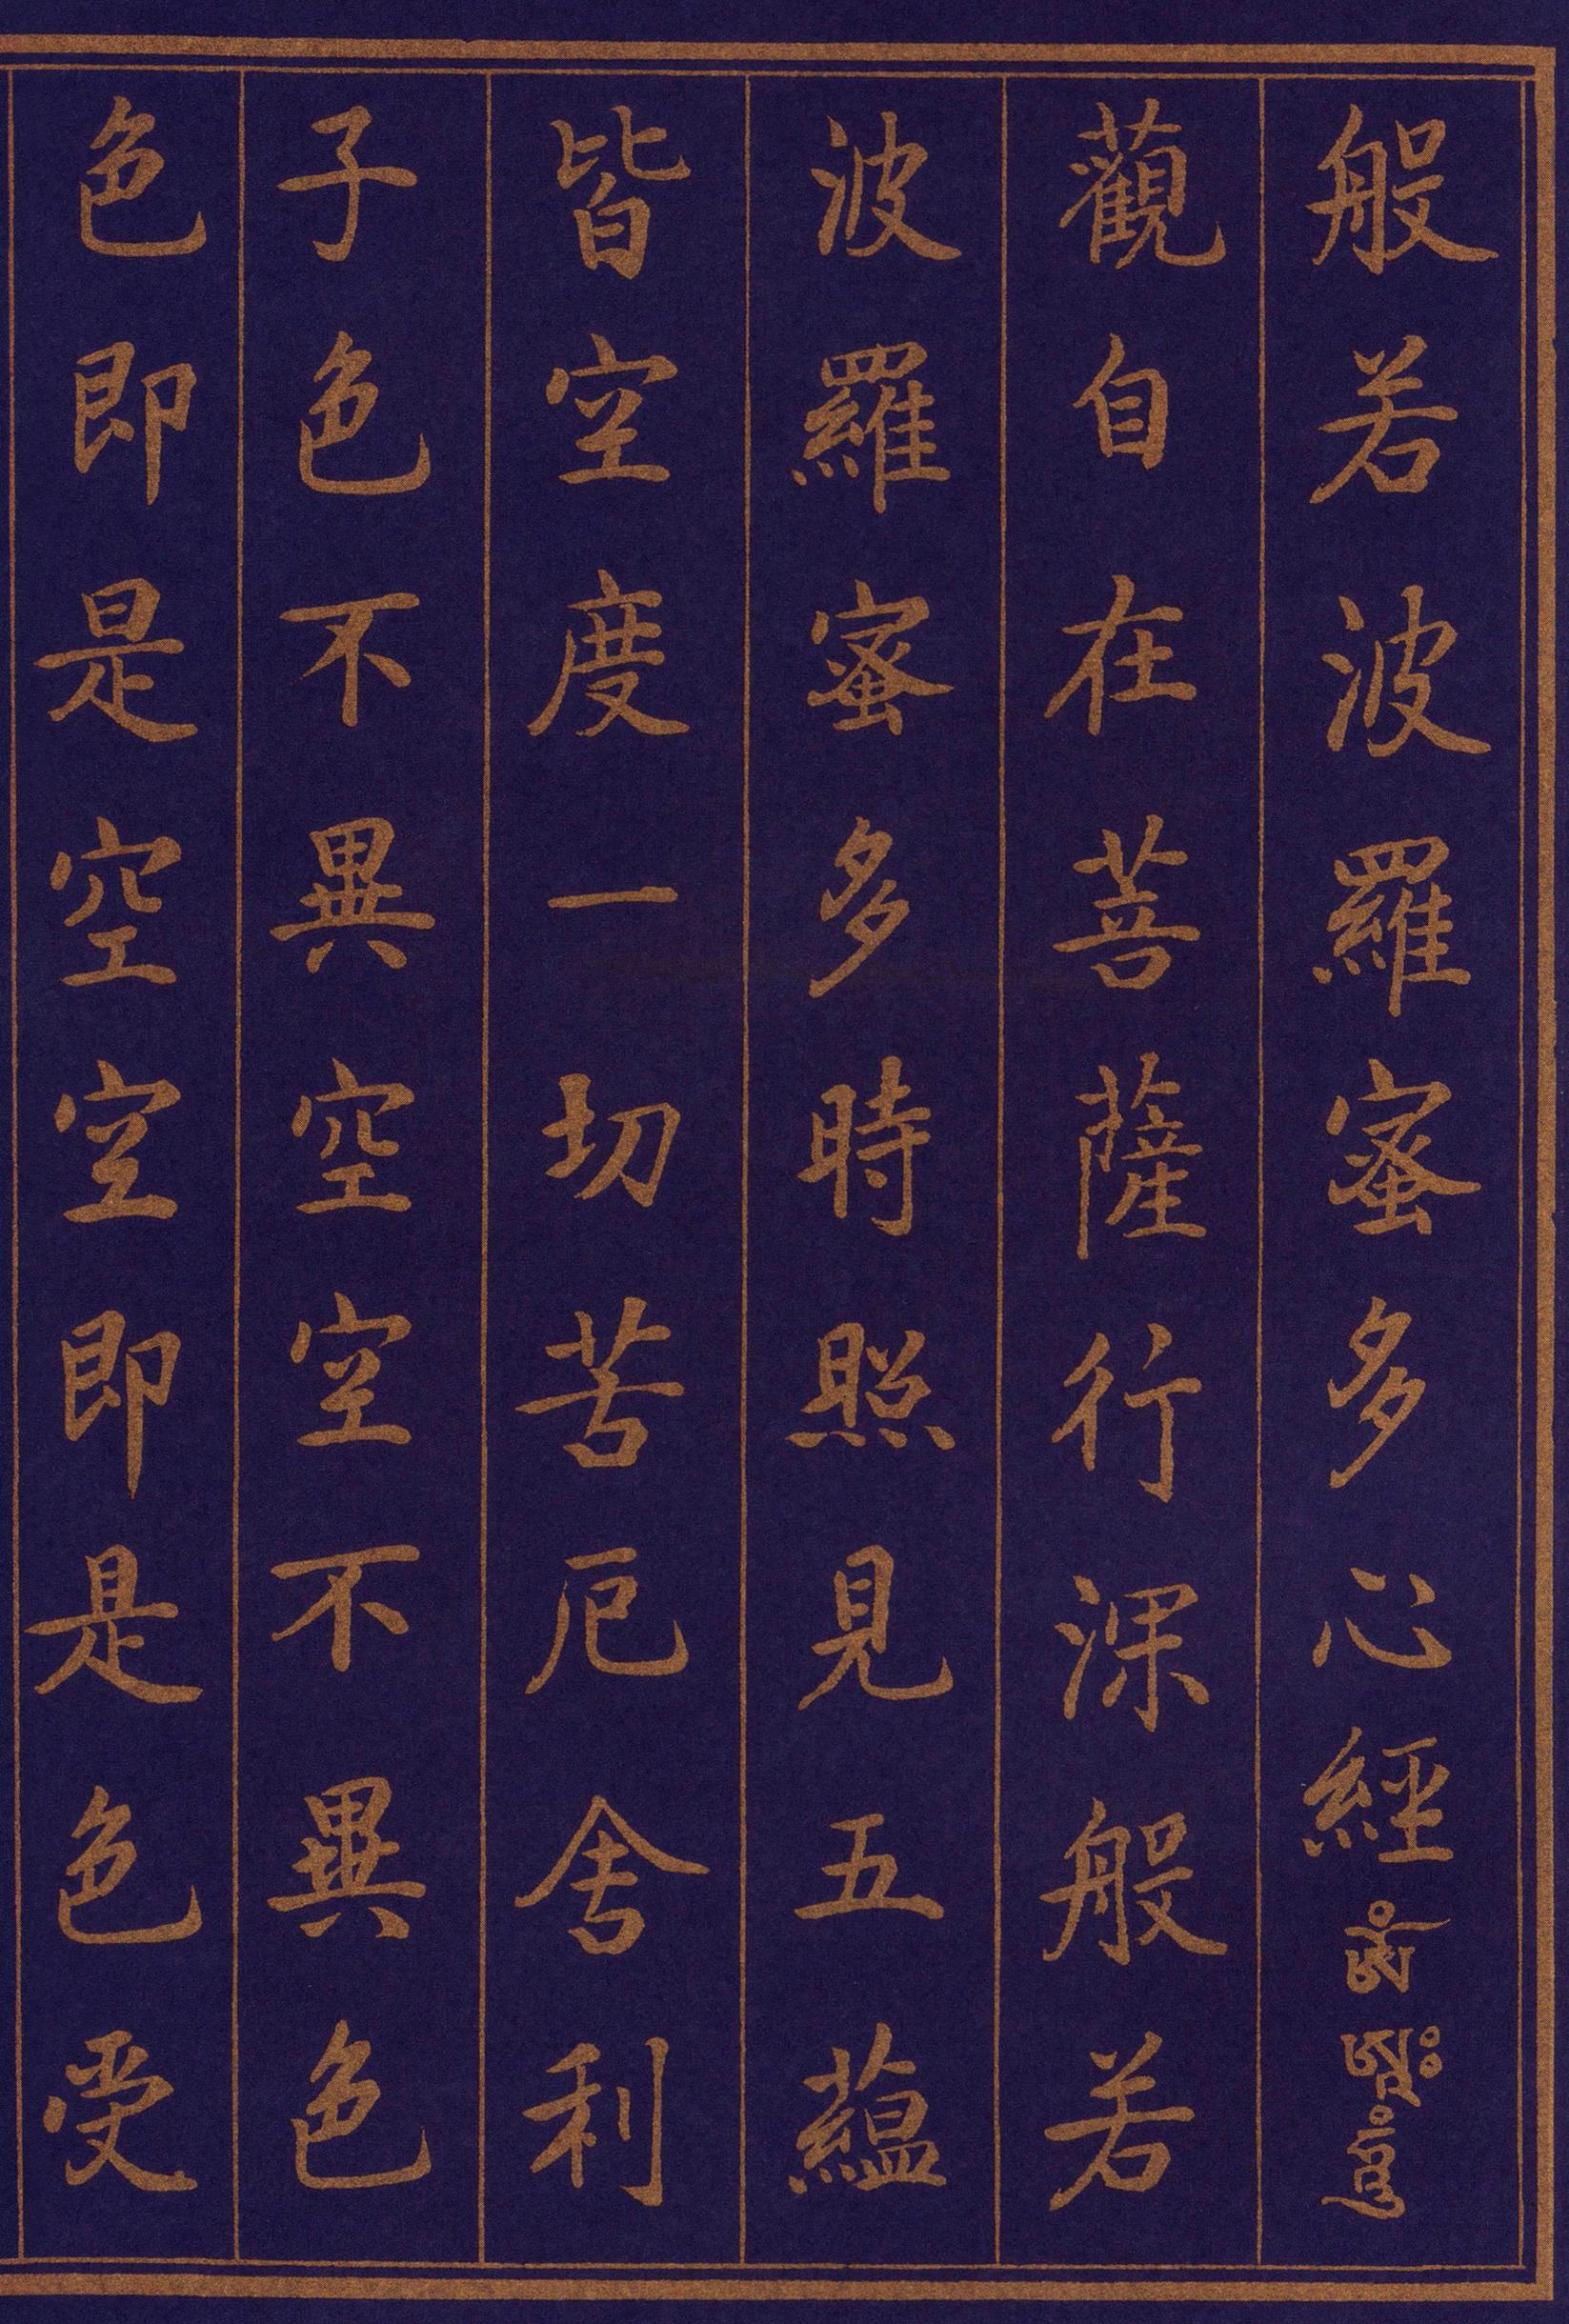 般若波羅蜜多心經 ཨོཾ ཨཱཿ ཧཱུྃ
觀自在菩薩行深般若
波羅蜜多時照見五蘊
皆空度一切苦厄舍利
子色不異空空不異色
色即是空空即是色受